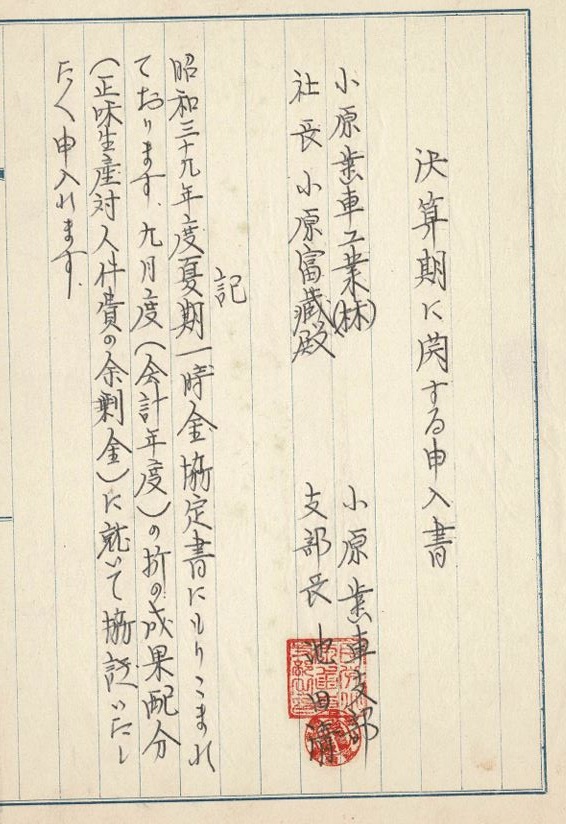 決算期に関する申入書
小原歯車工業(株)
社長 小原富蔵殿
小原歯車支部
支部長 池田清
記
昭和三十九年度夏期一時金協定書にもりこまれ
ております。九月度(会計年度)の折の成果配分
(正味生産対人件費の余剰金)に就いて協議いたし
たく申入れます。